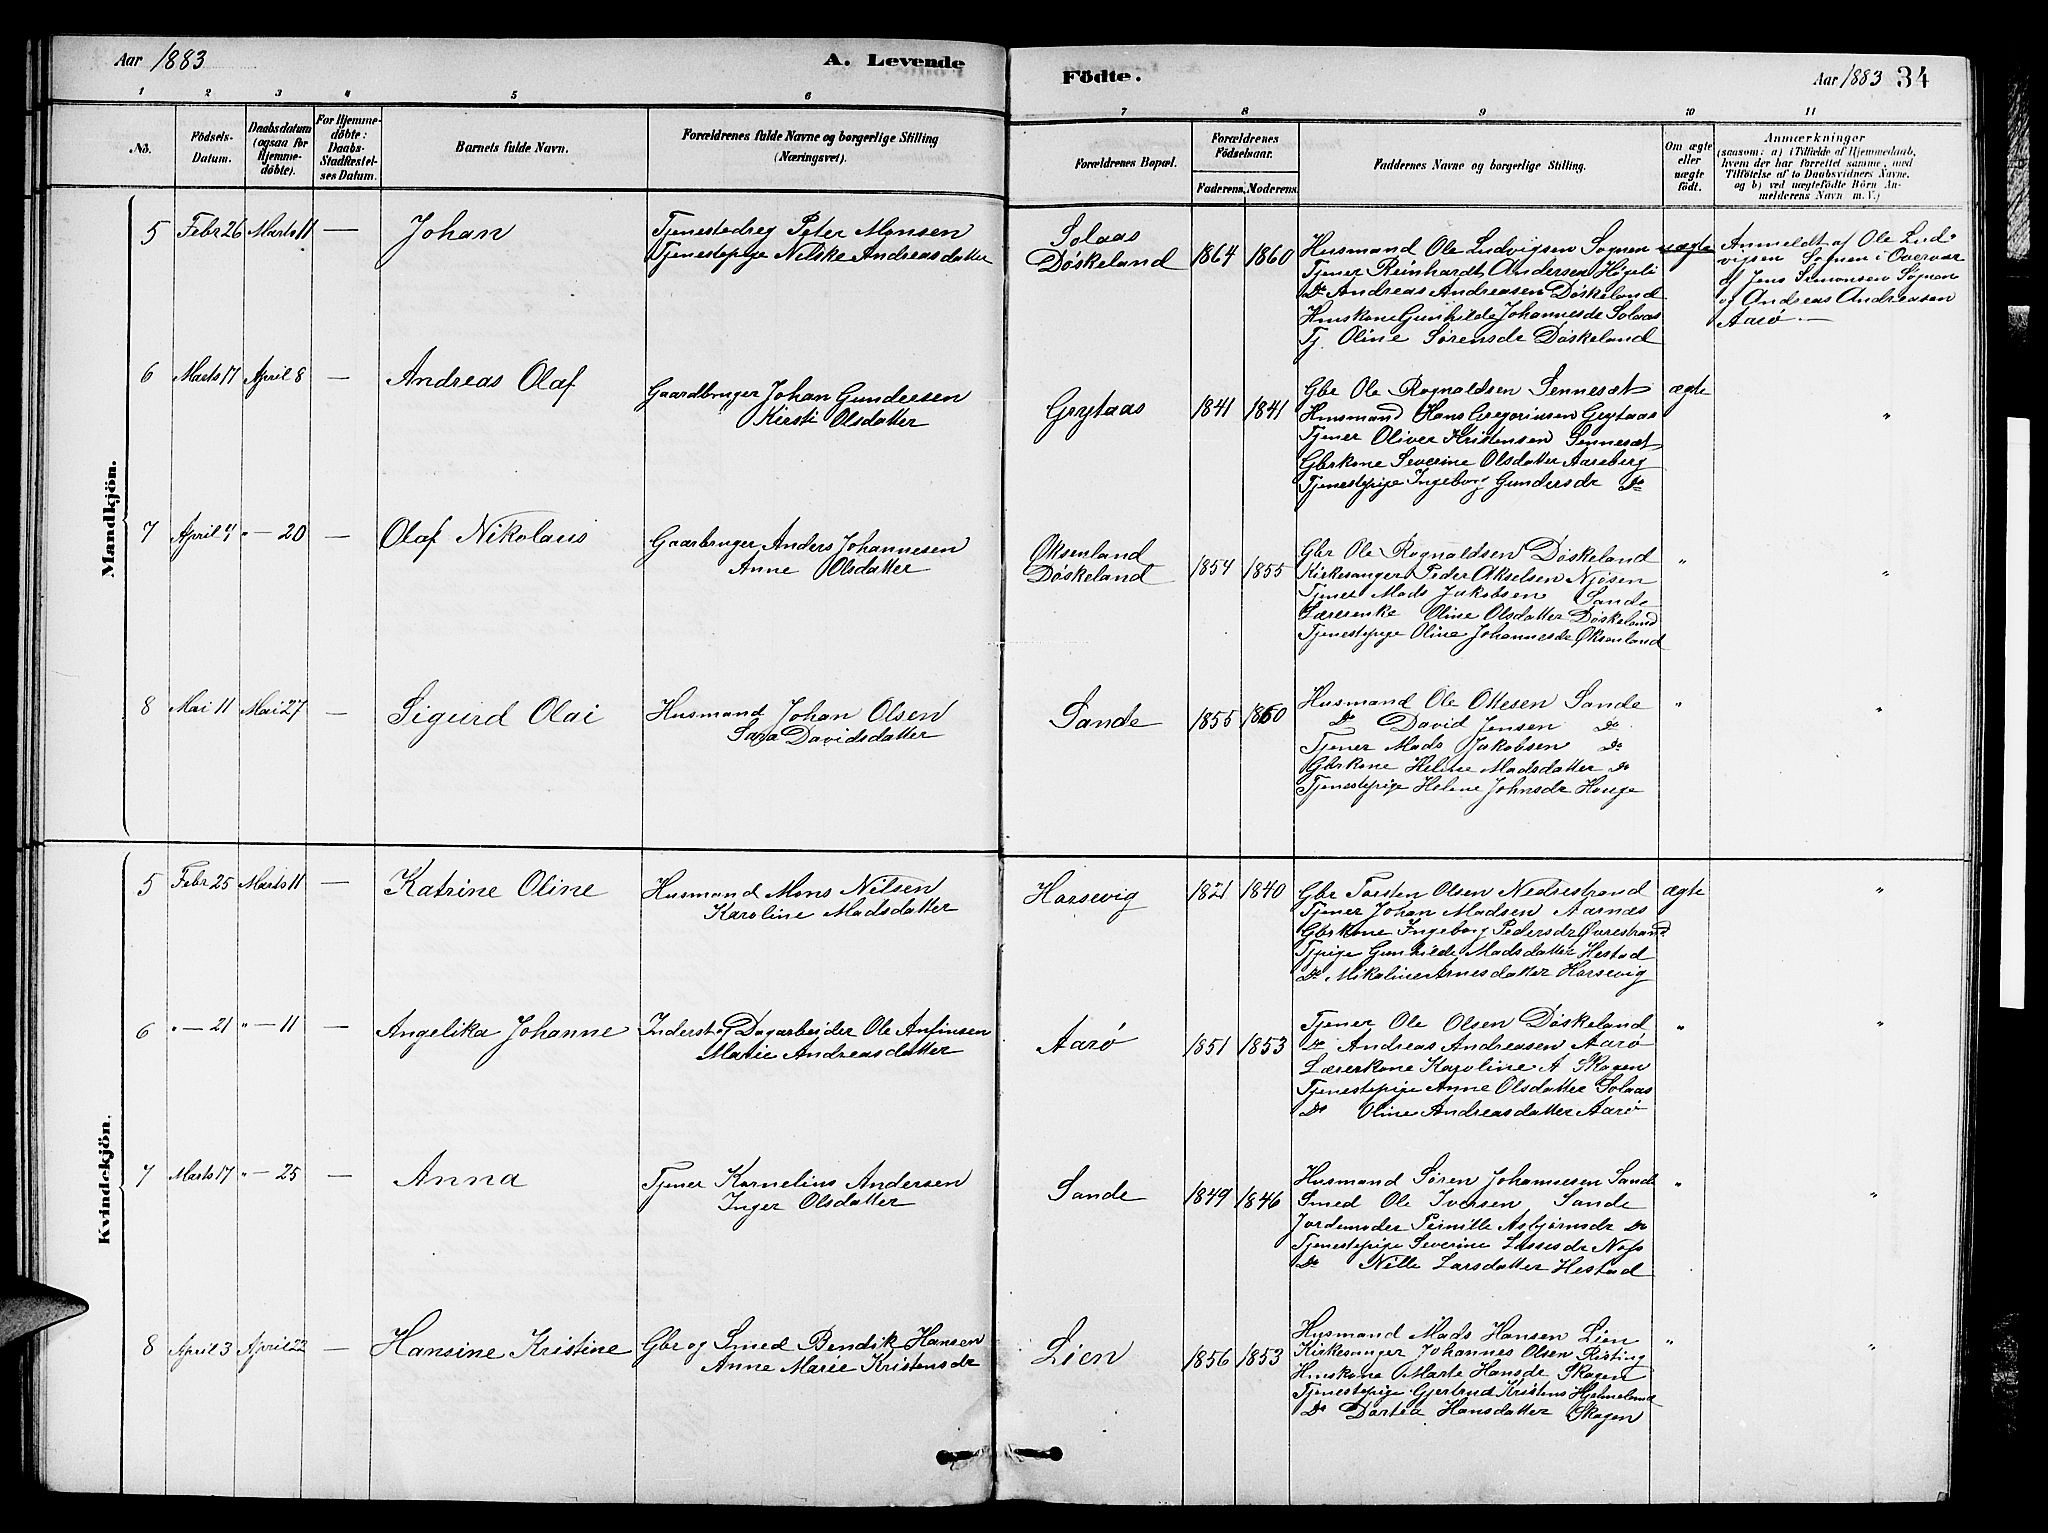 Aar 1883 A. Levende Födte. Aar 1883 34
1 2 3 4 5 6 7 8 9 10 11
No. Födsels-Datum. Daabsdatum (ogsaa for Hjemmedöbte). For Hjemmedöbte: Daabs-Stadfæstelses Datum. Barnets fulde Navn. Forældrenes fulde Navne og borgerlige Stilling (Næringsvei). Forældrenes Bopæl. Forældrenes Födselsaar. Faderens. Moderens. Faddernes Navne og borgerlige Stilling. Om ægte eller uægte födt. Anmærkninger (saasom: a) i Tilfælde af Hjemmedaab, hvem der har forrettet samme, med Tilföielse af to Daabsvidners Navne. og b) ved uægtefödte Börn Anmelderens Navn m. V.)
Mandkjön.
5 Febr 26 Marts 11 — Johan
Tjenestedreg Peter Monsen
Tjenestepige Nilske Andreasdatter
Solaas
Døskeland
1864 1860
Husmand Ole Ludvigsen Sognen
Tjener Reinhardt Andersen Høgeli
Do Andreas Andreasen Døskeland
Huskone Gunhilde Johannesdr Solaas
Tj. Oline Sørensdr Døskeland
uægte
Anmeldt af Ole Lud-
vigsen Sognen i Overvær
af Jens Simonsen Sognen
og Andreas Andreasen
Aarø. —
6 Marts 17 April 8 — Andreas Olaf
Gaardbruger Johan Gundersen
Kirsti Olsdatter
Grytaas
1841 1841
Gbr Ole Rognaldsen Sennesæt
Husmand Hans Gregoriusen Grytaas
Tjener Oliver Kristensen Sennesæt
Gbrkone Severine Olsdatter Aareberg
Tjenestepige Ingeborg Gundersdr Do
ægte "
7 April 4 " — 20 — Olaf Nikolaus
Gaarbruger Anders Johannesen
Anne Olsdatter
Oksenland
Døskeland
1854 1855
Gbr Ole Rognaldsen Døskeland
Kirkesanger Peder Akselsen Njøsen
Tjener Mads Jakobsen Sande
Lærerenke Oline Olsdatter Døskeland
Tjenestepige Oline Johannesdr Oksenland
" "
8 Mai 11 Mai 27 — Sigurd Olai
Husmand Johan Olsen
Sara Davidsdatter
Sande
1855 1860
Husmand Ole Ottesen Sande
Do David Jensen Do
Tjener Mads Jakobsen Do
Gbrkone Heline Madsdatter Do
Tjenestepige Helene Johnsdr Hauge
" "
Kvindekjön.
5 Febr 25 Marts 11 — Katrine Oline
Husmand Mons Nilsen
Karoline Madsdatter
Horsevig
1821 1840
Gbr Torsten Olsen Nedrestrand
Tjener Johan Madsen Aarnæs
Gbrkone Ingeborg Pedersdr Øvrestrand
Tjpige Gunhilde Madsdatter Hestad
Do Mikaline Arnesdatter Horsevig
ægte "
6 " — 21 " — 11 — Angelika Johanne
Inderst og Dagarbeider Ole Anfinsen
Marie Andreasdatter
Aarø
1851 1853
Tjener Ole Olsen Døskeland
Do Andreas Andreasen Aarø
Lærerkone Karoline A Skagen
Tjenestepige Anne Olsdatter Solaas
Do Oline Andreasdatter Aarø
" "
7 Marts 17 " — 25 — Anna
Tjener Kornelius Andersen
Inger Olsdatter
Sande
1849 1846
Husmand Søren Johannesen Sande
Smed Ole Iversen Sande
Jordemoder Pernille Asbjørnsdr Do
Tjenestepige Severine Lassesdr
Do Nille Larsdatter Hestad
" "
8 April 3 April 22 — Hansine Kristine
Gbr og Smed Bendik Hansen
Anne Marie Kristensdr
Lien
1856 1853
Husmand Mads Hansen Lien
Kirkesanger Johannes Olsen Risting
Huskone Marte Hansdr Skagen
Tjenestepige Gjertrud Kristens Hjelmeland
Do Dortea Hansdatter Skagen
" "